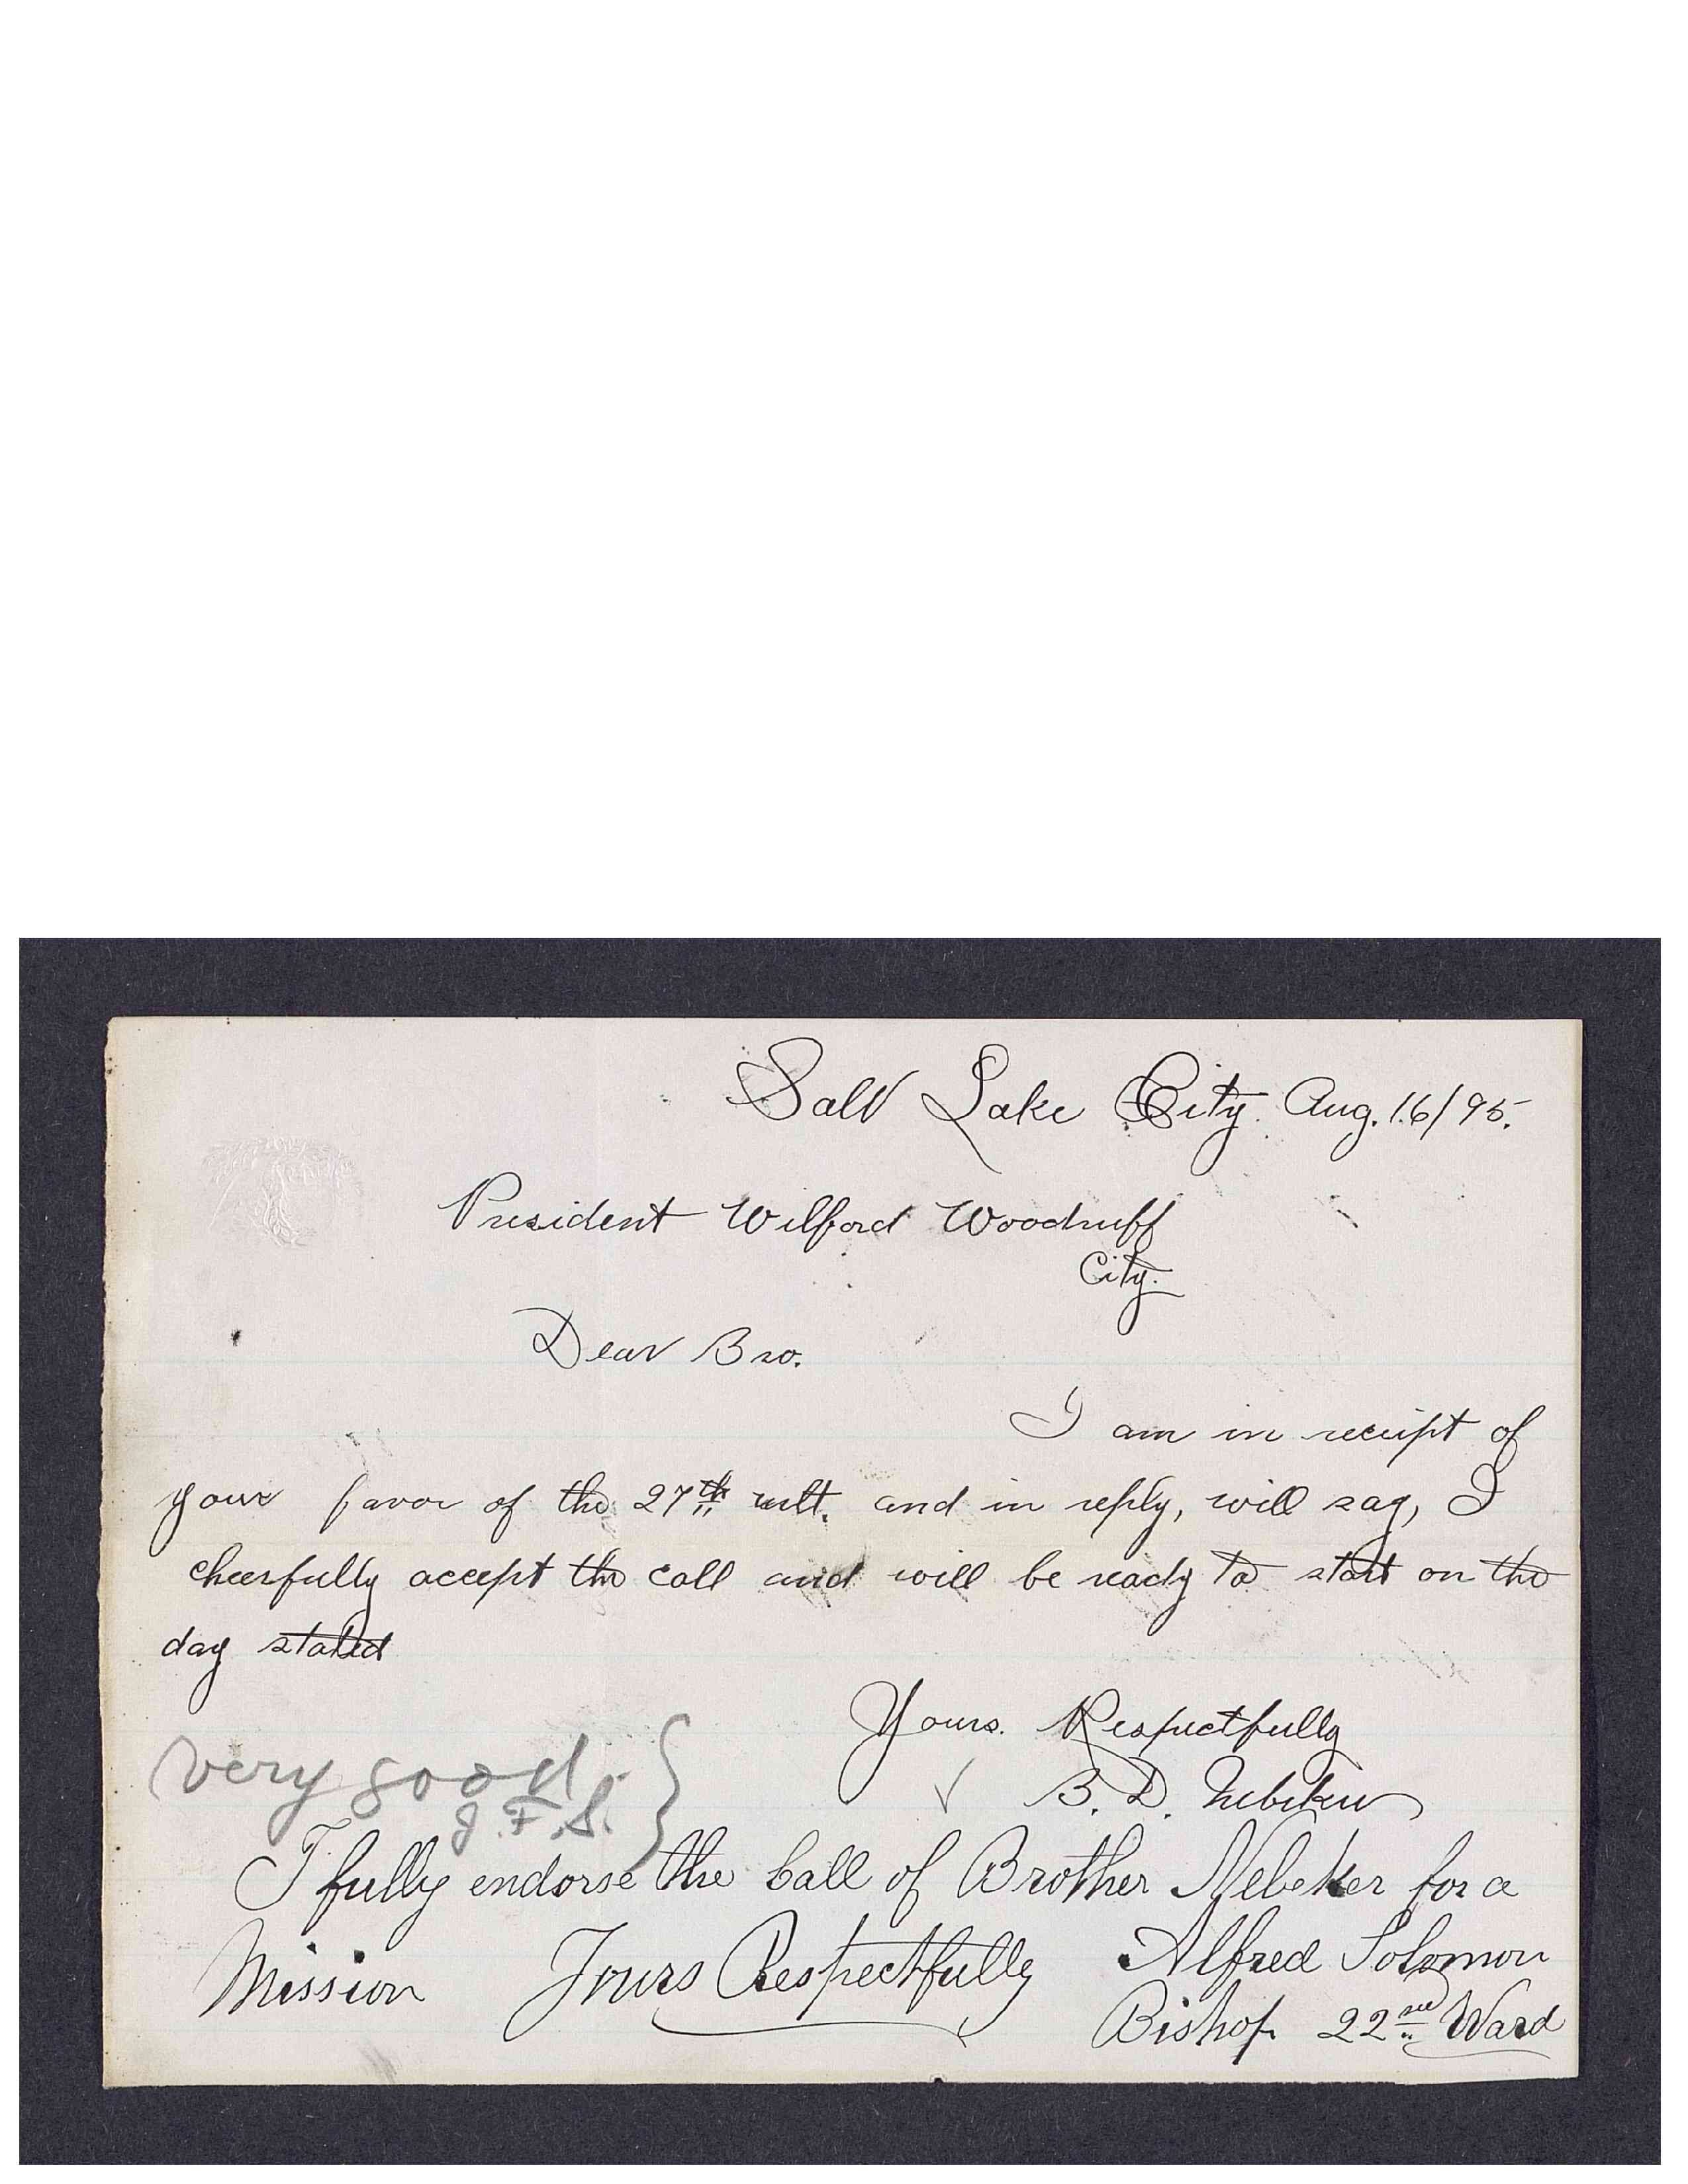 Salt Lake City. Aug. 16/95.
President Wilford Woodruff
City.
Dear Bro.
I am in receipt of
your favor of the 27th ult. and in reply, will say, I
cheerfully accept the call and will be ready to start on the
day stated
Yours. Respectfully
B. D. Nebeker
very good.
J. F. S.
I fully endorse the Call of Brother Nebeker for a
Mission Yours Respectfully Alfred Solomon
Bishop 22nd Ward